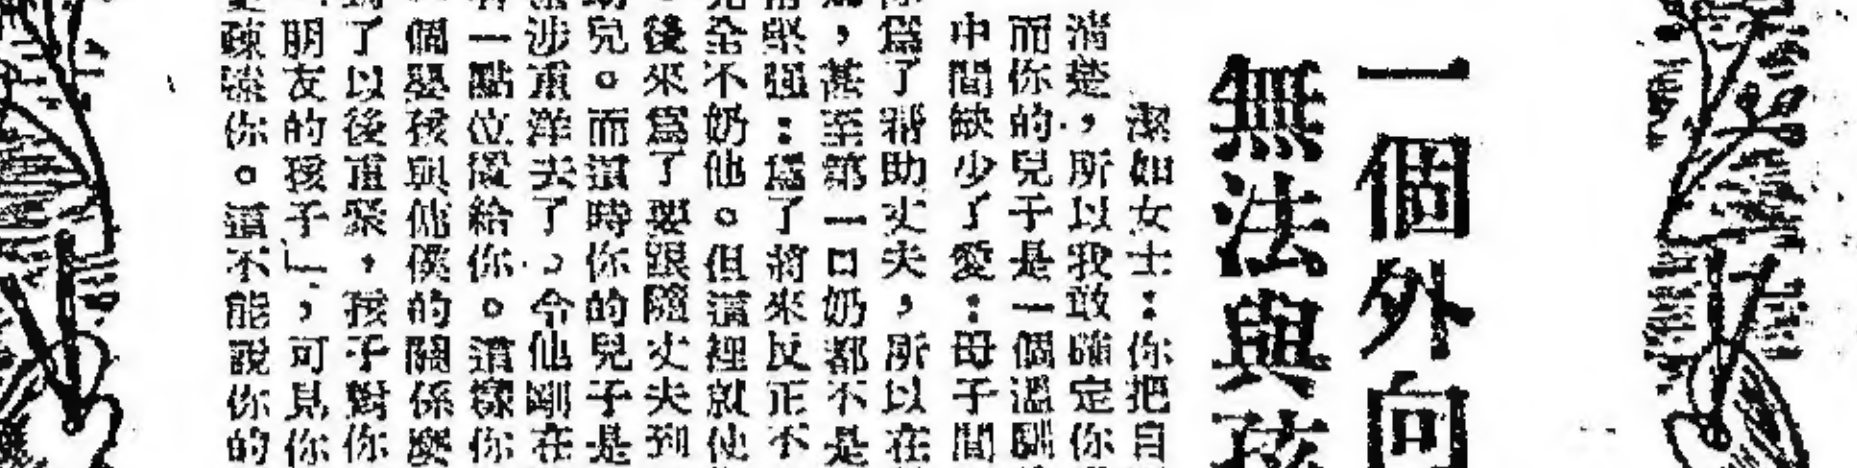 一個外向
無法與孩
潔如女士：你把自
清楚，所以我敢確定你
而你的兒子是一個溫馴
中間缺少了愛：母子間
你爲了幫助丈夫，所以在
，甚至第一口奶都不是
堅強：爲了將來反正不
完全不奶他。但這裡就使
後來爲了要跟隨丈夫到
兒。而這時你的兒子是
涉重洋去了。令他剛在
一點位置給你。這樣你
個學孩與他僕的關係
了以後重聚，孩子對你
朋友的孩子」，可見你
疎遠你。這不能說你的